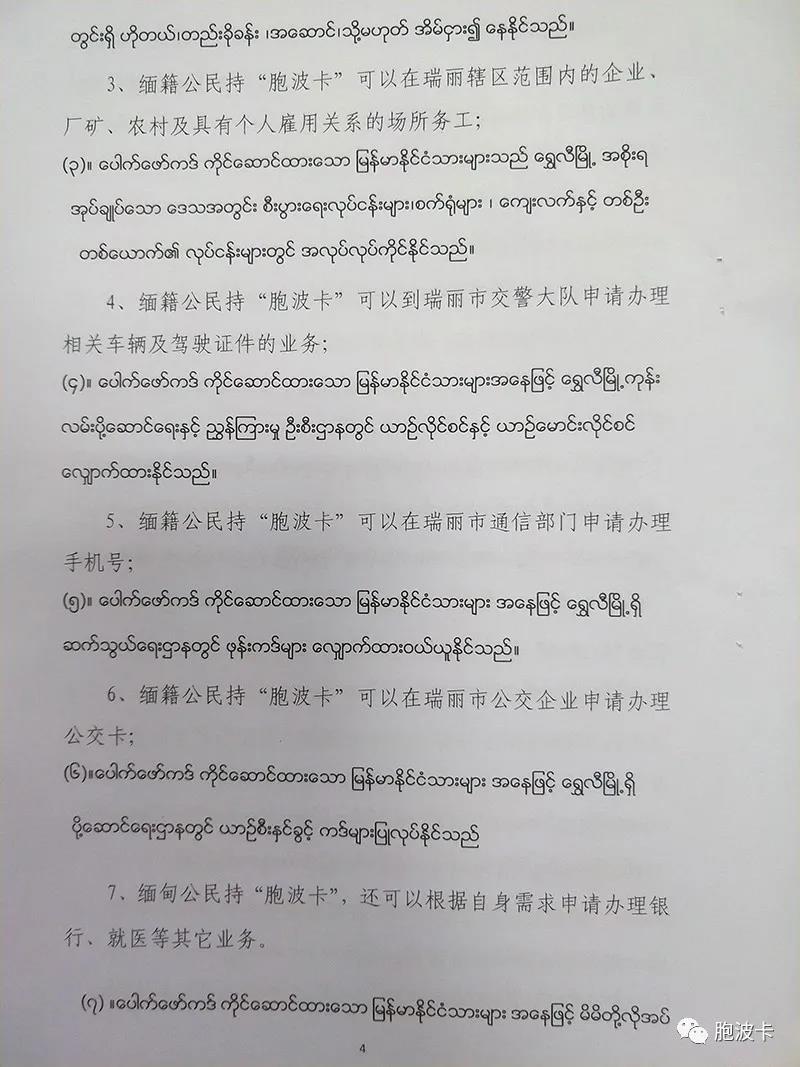 တွင်းရှိ ဟိုတယ်၊တည်းခိုခန်း ၊အဆောင်၊သို့မဟုတ် အိမ်ငှား၍ နေနိုင်သည်။
3、缅籍公民持“胞波卡”可以在瑞丽辖区范围内的企业、
厂矿、农村及具有个人雇用关系的场所务工；
(၃)။ ပေါက်ဖော်ကဒ် ကိုင်ဆောင်ထားသော မြန်မာနိုင်ငံသားများသည် ရွှေလီမြို့ အစိုးရ
အုပ်ချုပ်သော ဒေသအတွင်း စီးပွားရေးလုပ်ငန်းများ၊စက်ရုံများ ၊ ကျေးလက်နှင့် တစ်ဦး
တစ်ယောက်၏ လုပ်ငန်းများတွင် အလုပ်လုပ်ကိုင်နိုင်သည်။
4、缅籍公民持“胞波卡”可以到瑞丽市交警大队申请办理
相关车辆及驾驶证件的业务；
(၄)။ ပေါက်ဖော်ကဒ် ကိုင်ဆောင်ထားသော မြန်မာနိုင်ငံသားများအနေဖြင့် ရွှေလီမြို့ကုန်း
လမ်းပို့ဆောင်ရေးနှင့် ညွှန်ကြားမှု ဦးစီးဌာနတွင် ယာဉ်လိုင်စင်နှင့် ယာဉ်မောင်းလိုင်စင်
လျှောက်ထားနိုင်သည်။
5、缅籍公民持“胞波卡”可以在瑞丽市通信部门申请办理
手机号；
(၅)။ ပေါက်ဖော်ကဒ် ကိုင်ဆောင်ထားသော မြန်မာနိုင်ငံသားများ အနေဖြင့် ရွှေလီမြို့ရှိ
ဆက်သွယ်ရေးဌာနတွင် ဖုန်းကဒ်များ လျှောက်ထားဝယ်ယူနိုင်သည်။
6、缅籍公民持“胞波卡”可以在瑞丽市公交企业申请办理
公交卡；
(၆)။ပေါက်ဖော်ကဒ် ကိုင်ဆောင်ထားသော မြန်မာနိုင်ငံသားများ အနေဖြင့် ရွှေလီမြို့ရှိ
ပို့ဆောင်ရေးဌာနတွင် ယာဉ်စီးနှင်ခွင့် ကဒ်များပြုလုပ်နိုင်သည်
7、缅甸公民持“胞波卡”，还可以根据自身需求申请办理银
行、就医等其它业务。
(၇) ။ပေါက်ဖော်ကဒ် ကိုင်ဆောင်ထားသော မြန်မာနိုင်ငံသားများ အနေဖြင့် မိမိတို့လိုအပ်
4
胞波卡